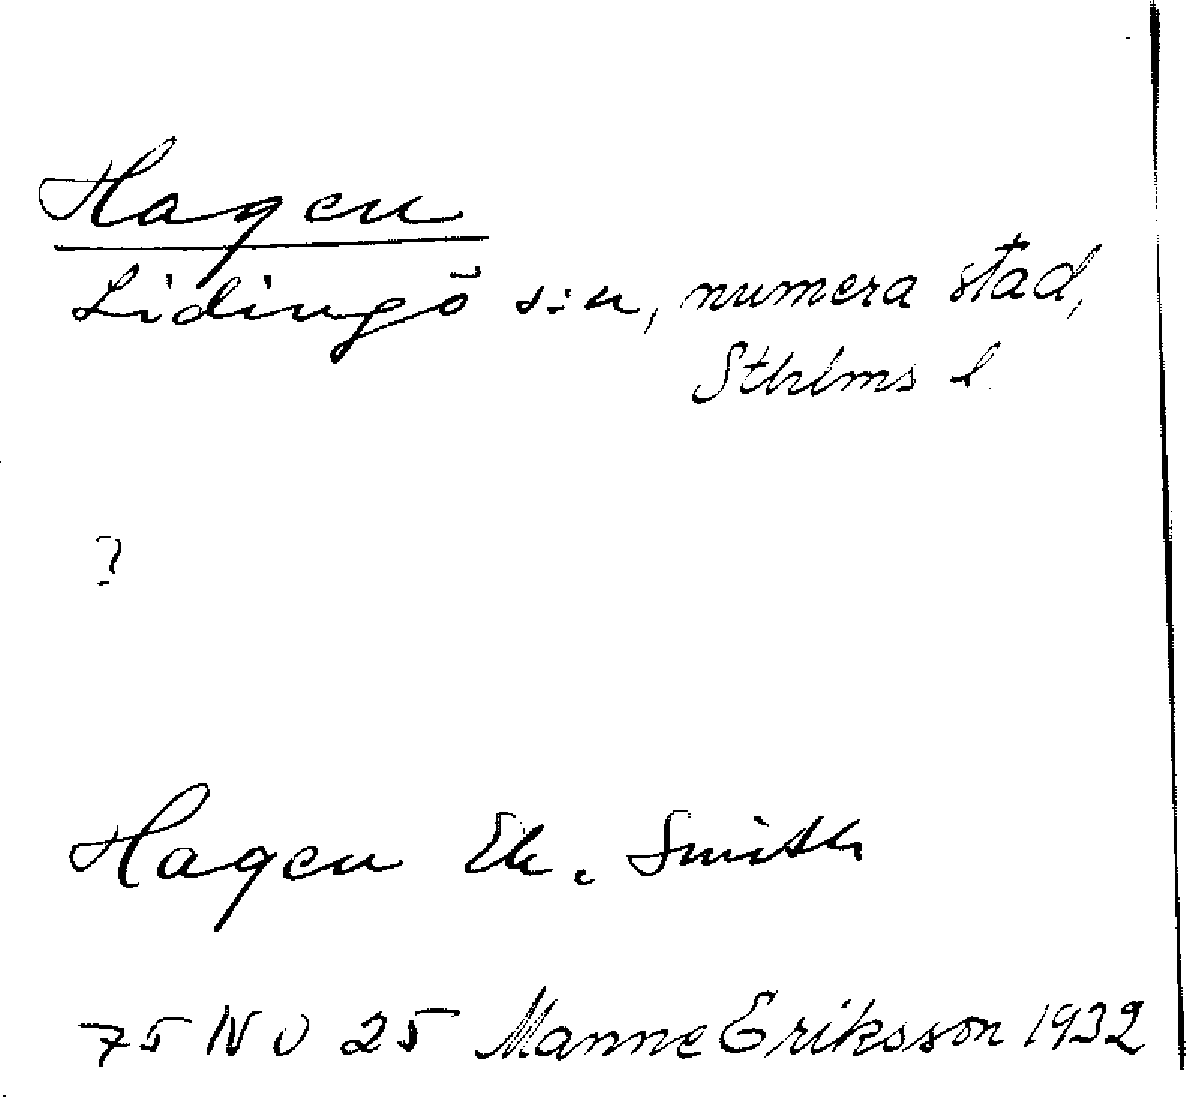 Hagen
Lidingö s:n, numera stad,
Sthlms l.
?
Hagen Ek. Smith
75 NV 25 Manne Eriksson 1932